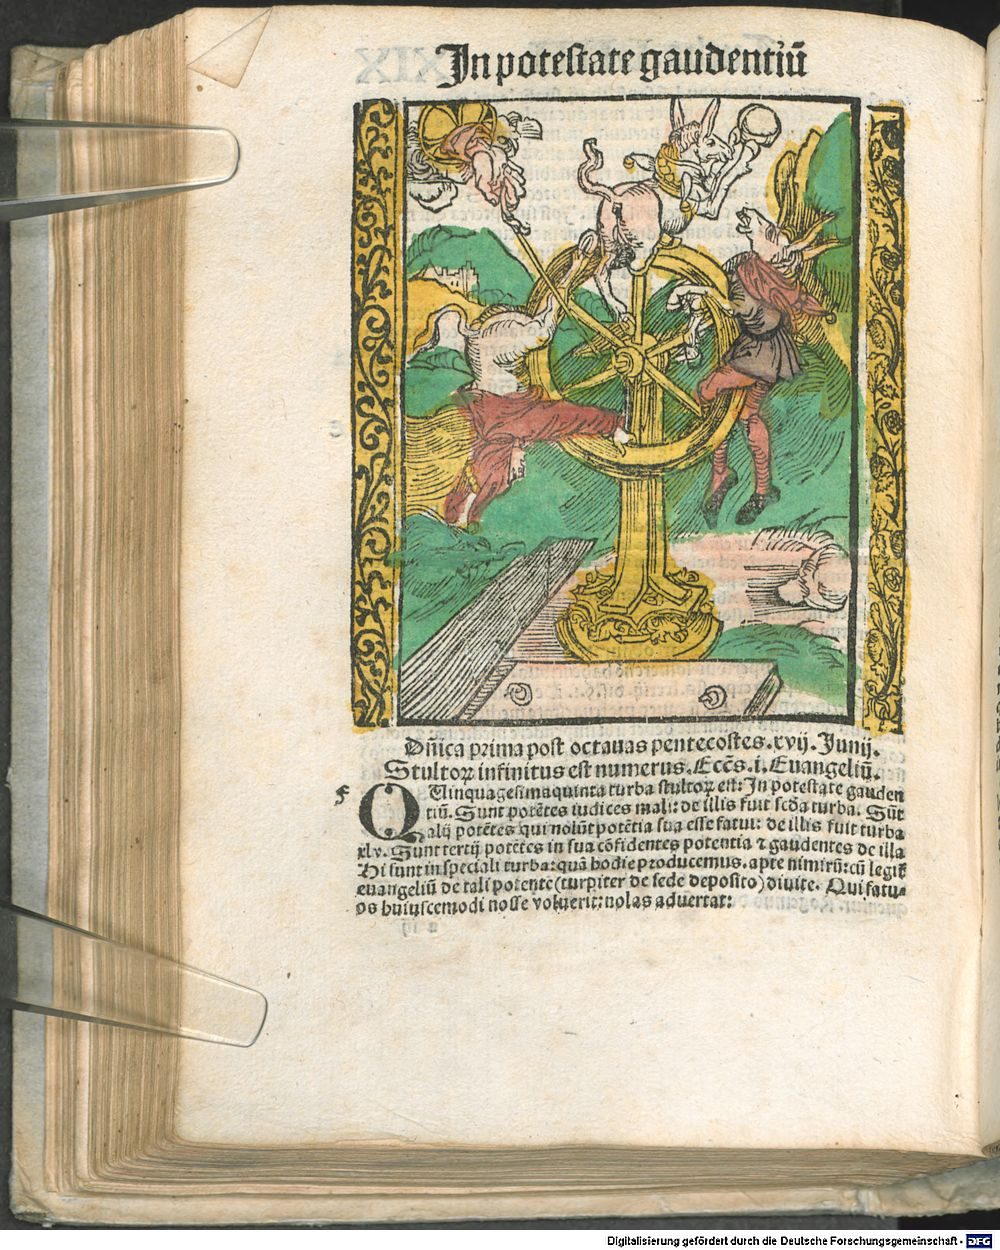 In potestate gaudentiū
Dn̄ica prima post octauas pentecostes.xvij. Junij.
Stultoꝝ infinitus est numerus. Eccēs.i. Euangeliū.
f QUinquagesima quinta turba stultoꝝ est: In potestate gauden
tiū. Sunt potētes iudices mali: de illis fuit scḋa turba. Sūt
alij potētes qui nolūt potētia sua esse fatui: de illis fuit turba
xlv. Sunt tertij potētes in sua cōfidentes potentia ⁊ gaudentes de illa
Hi sunt in speciali turba: quā hodie producemus. apte nimirū: cū legit̄
euangeliū de tali potente (turpiter de sede deposito) diuite. Qui fatu⸗
os huiuscemodi nosse voluerit: nolas aduertat:
Digitalisierung gefördert durch die Deutsche Forschungsgemeinschaft - DFG